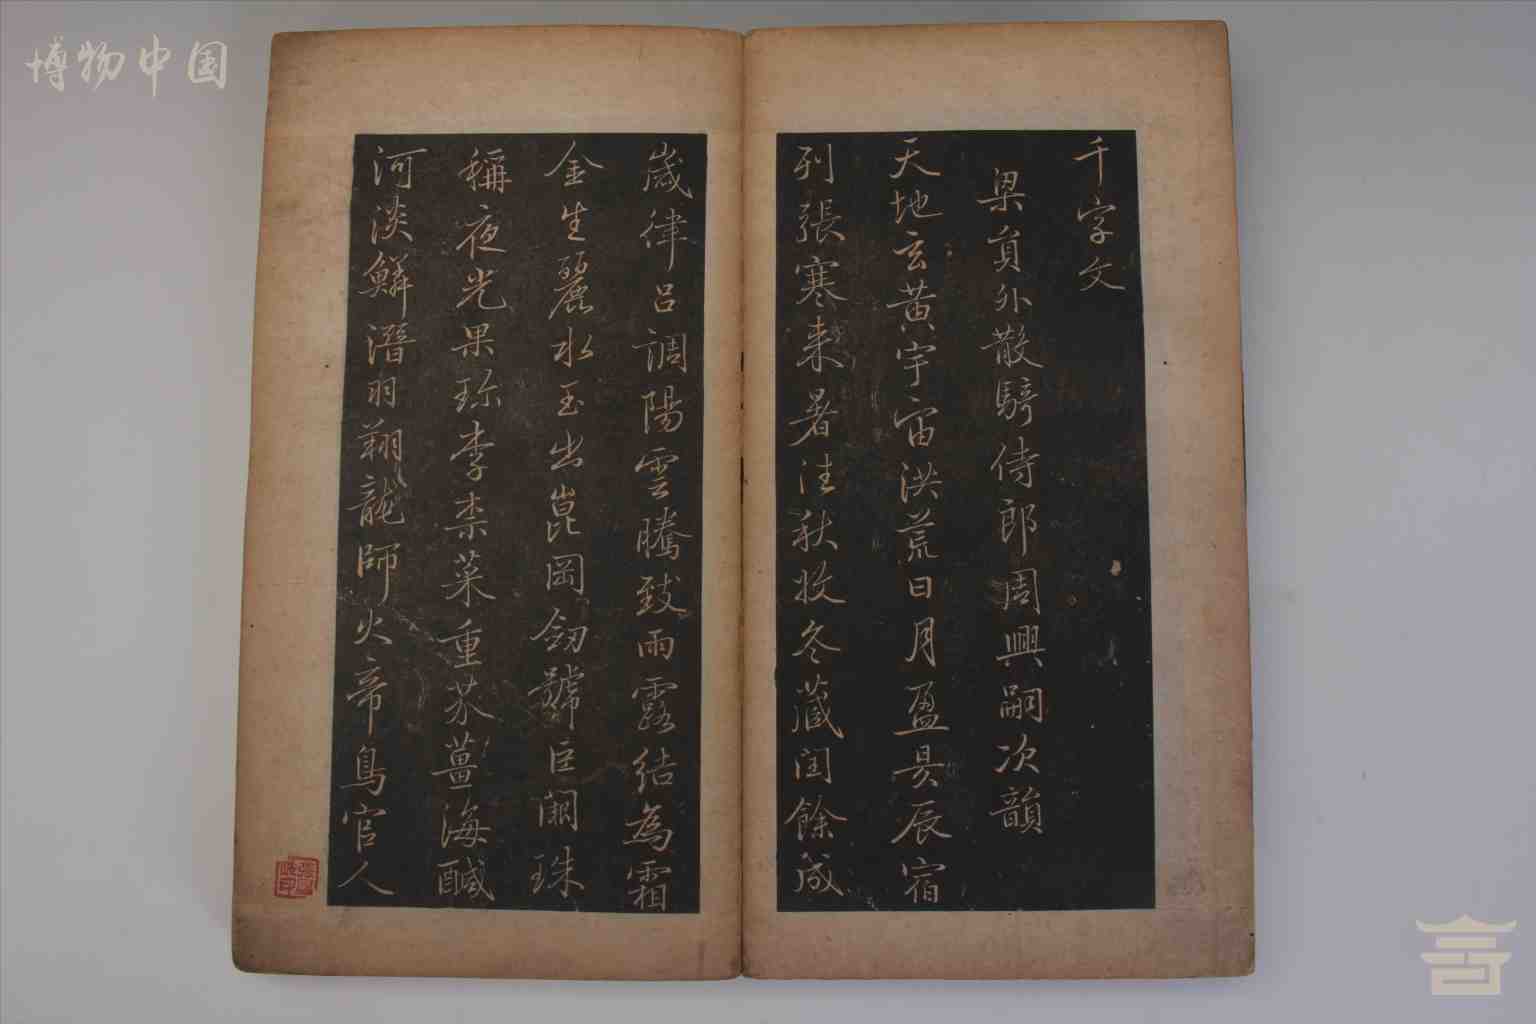 博物中国
千字文
梁員外散騎侍郎周興嗣次韻
天地玄黃宇宙洪荒日月盈昃辰宿
列張寒来暑往秋收冬藏閏餘成
歲律呂調陽雲騰致雨露結為霜
金生麗水玉出崑岡劒號巨闕珠
稱夜光果珎李柰菜重芥薑海醎
河淡鱗潛羽翔龍師火帝鳥官人